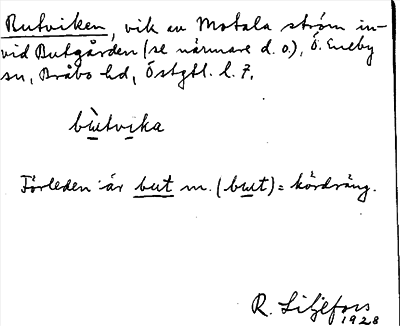 Butviken, vik av Motala ström in-
vid Butgården (se närmare d. o.), Ö. Eneby
sn, Bråbo hd, Östgtl. l. 7.
bùtvika
Förleden är but m. (but) = kördräng.
R. Liljefors
1928